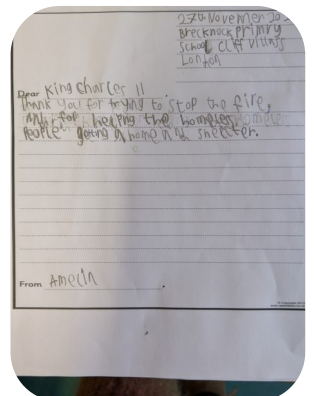 27th November 20
Brecknock primry
School Cliff Villas
London
Dear King Charles II
Thank you for trying to stop the fire,
And for helping the homeless
People getting a home and shelter.
From Amelin